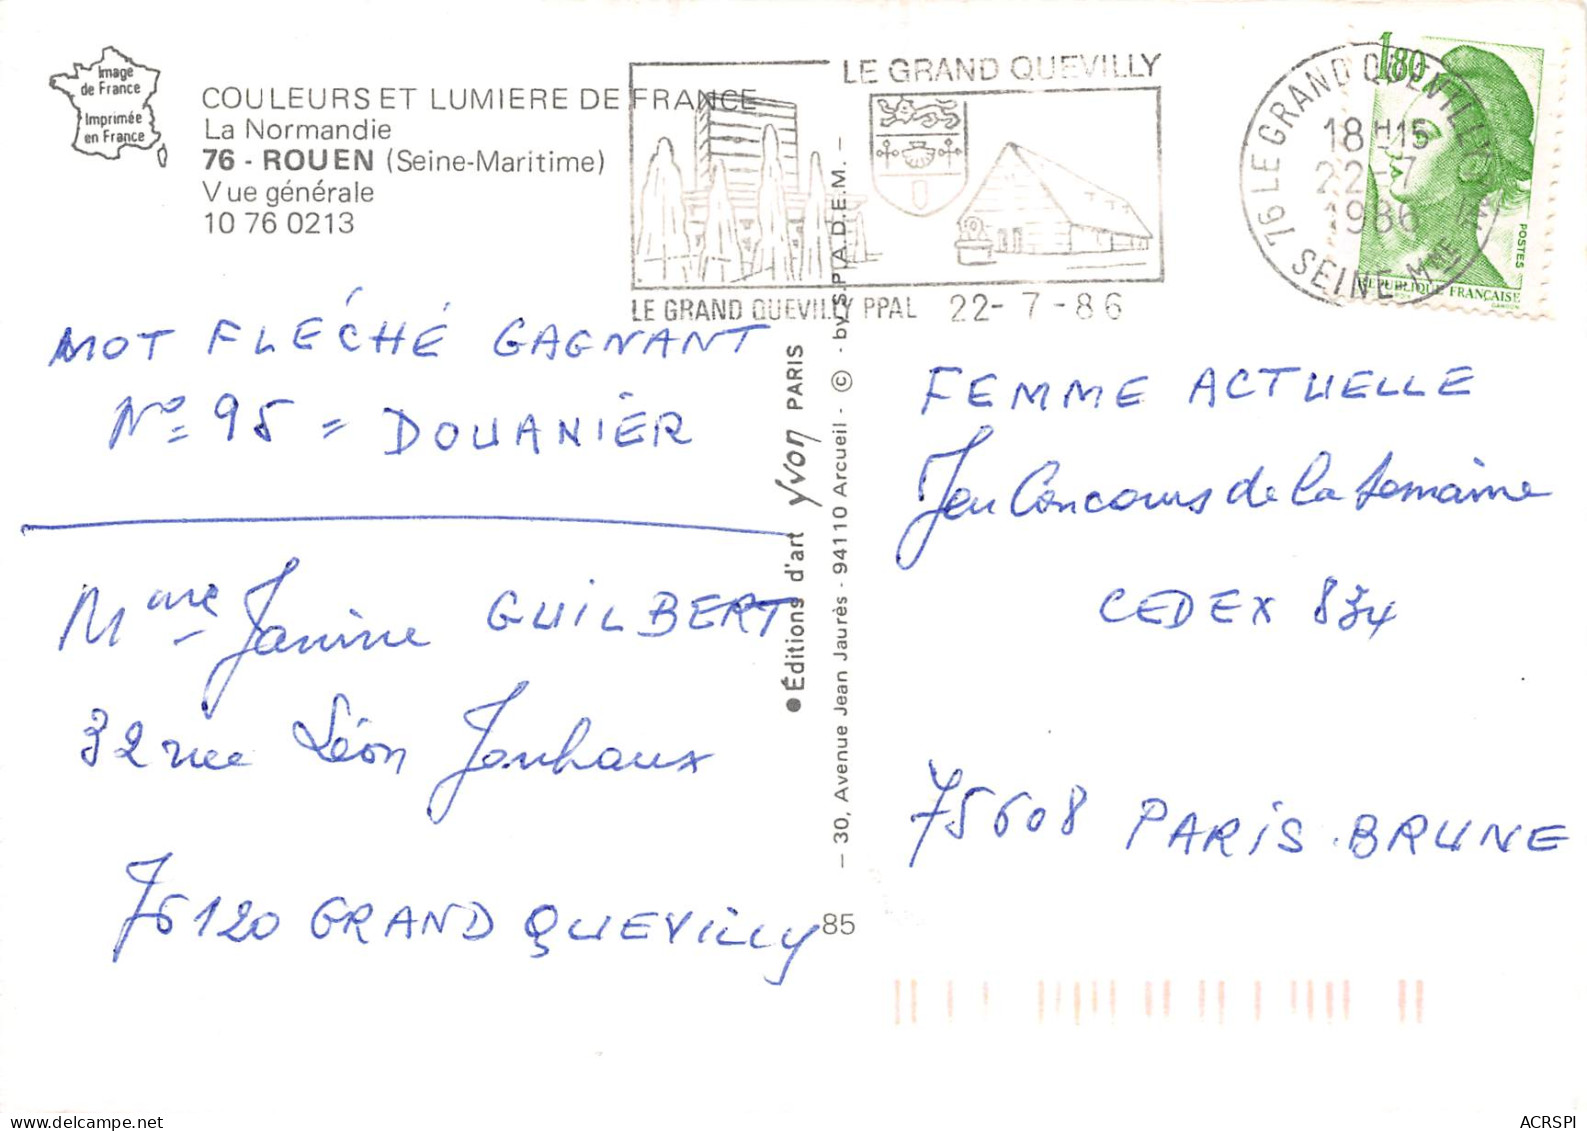 Image
de France
Imprimée
en France
COULEURS ET LUMIERE DE FRANCE
La Normandie
76 - ROUEN (Seine-Maritime)
Vue générale
10 76 0213
LE GRAND QUEVILLY
LE GRAND QUEVILLY PPAL 22-7-86
76 LE GRAND QUEVILLY PPAL
18H15
22-7
1986
SEINE-MME
1,80
POSTES
REPUBLIQUE FRANÇAISE
MOT FLÉCHÉ GAGNANT
No 95 = DOUANIER
Mme Janine GUILBERT
32 rue Léon Jouhaux
76120 GRAND QUEVILLY
● Éditions d'art yvon PARIS
— 30, Avenue Jean Jaurès - 94110 Arcueil - © - by S.P.A.D.E.M. —
85
FEMME ACTUELLE
Jeu Concours de la Semaine
CEDEX 834
75608 PARIS.BRUNE
ACRSPI